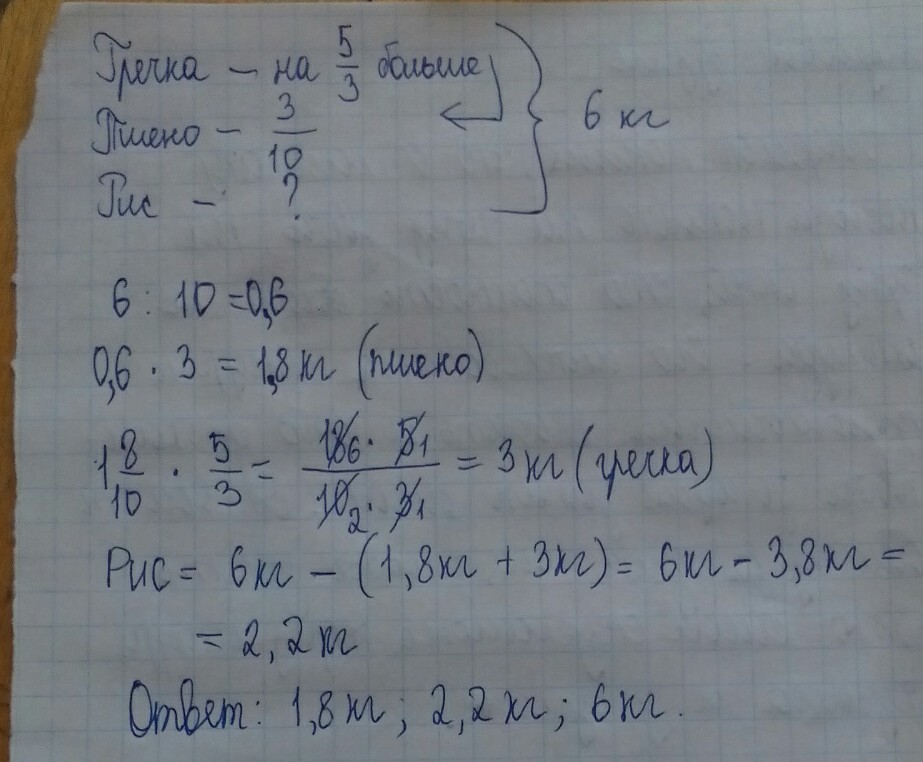 Гречка – на 5/3 больше
Пшено – 3/10
Рис – ?
6 кг
6 : 10 = 0,6
0,6 · 3 = 1,8 кг (пшено)
1 8/10 · 5/3 = 18 6 · 5 1 / 10 2 · 3 1 = 3 кг (гречка)
Рис = 6кг – (1,8кг + 3кг) = 6кг – 3,8кг =
= 2,2 кг
Ответ: 1,8 кг; 2,2 кг; 6 кг.